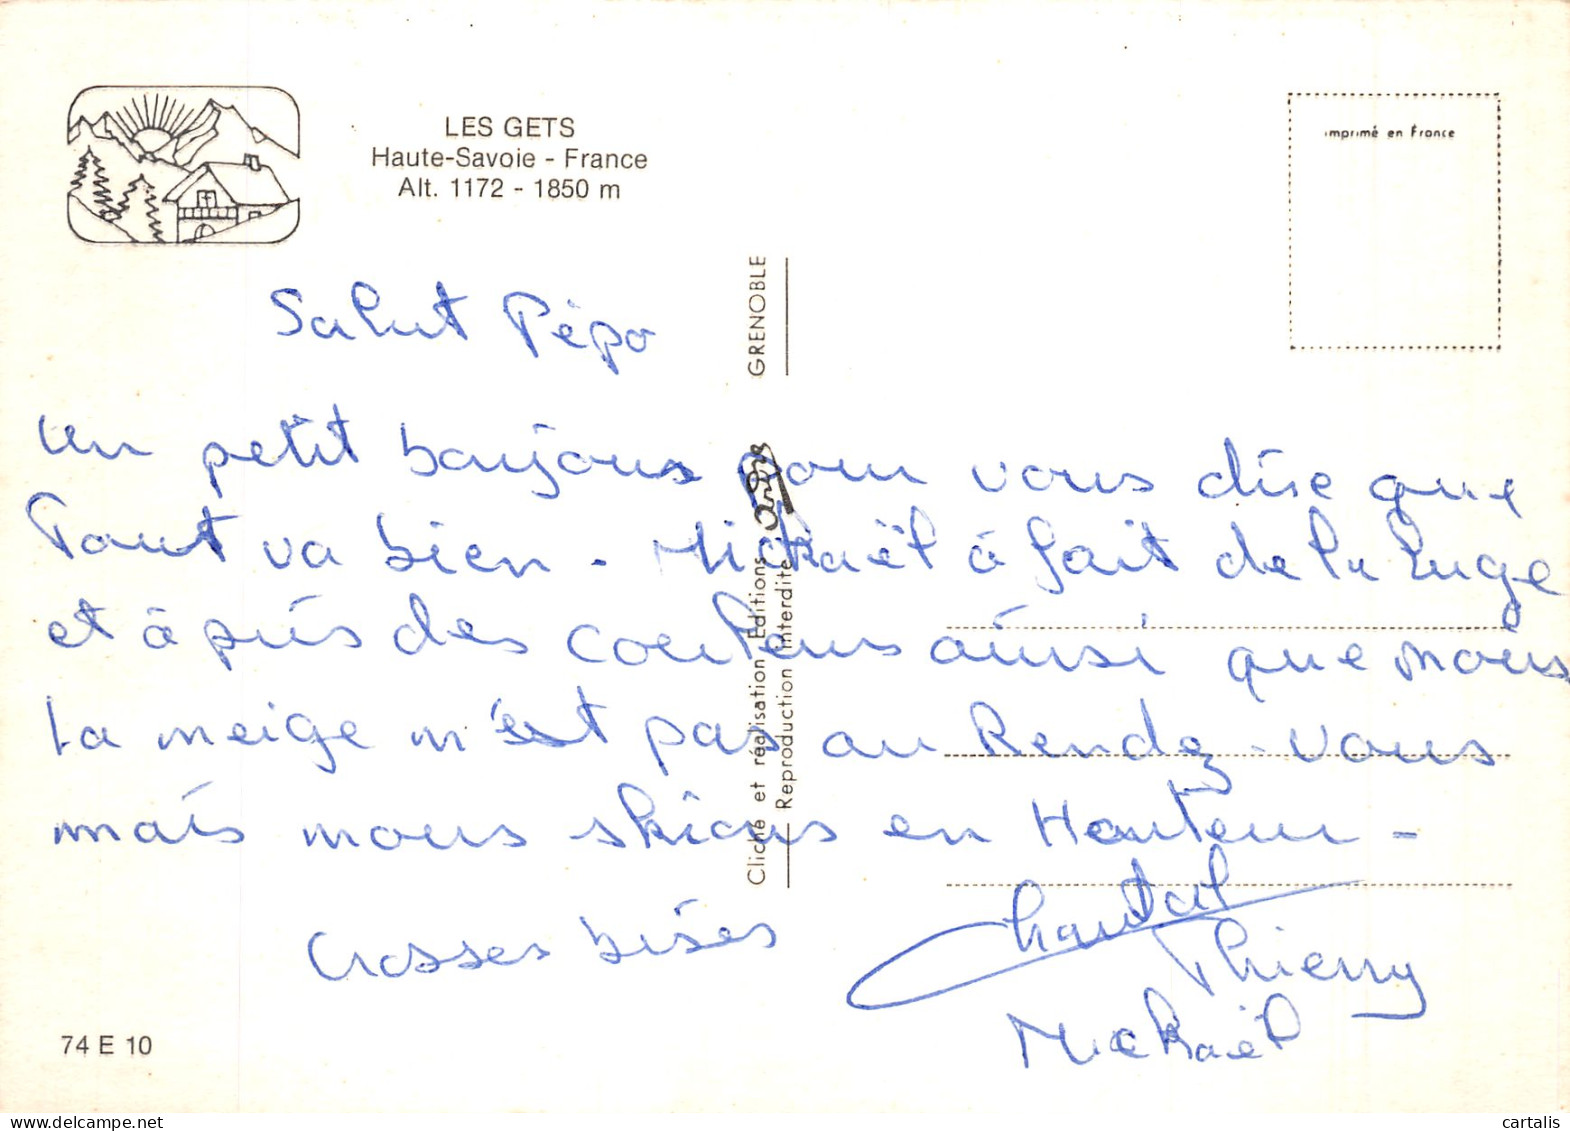 LES GETS
Haute-Savoie - France
Alt. 1172 - 1850 m
imprimé en France
Salut Pépo
un petit bonjours pour vous dire que
Tout va bien - Mickaël à fait de la luge
et à pris des couleurs ainsi que nous
La neige n'est pas au Rendez-vous
mais nous skions en Hauteur -
Grosses bises
Chantal
Thierry
Mickaël
Cliché et réalisation Editions andré GRENOBLE
Reproduction interdite
74 E 10
www.delcampe.net
cartalis